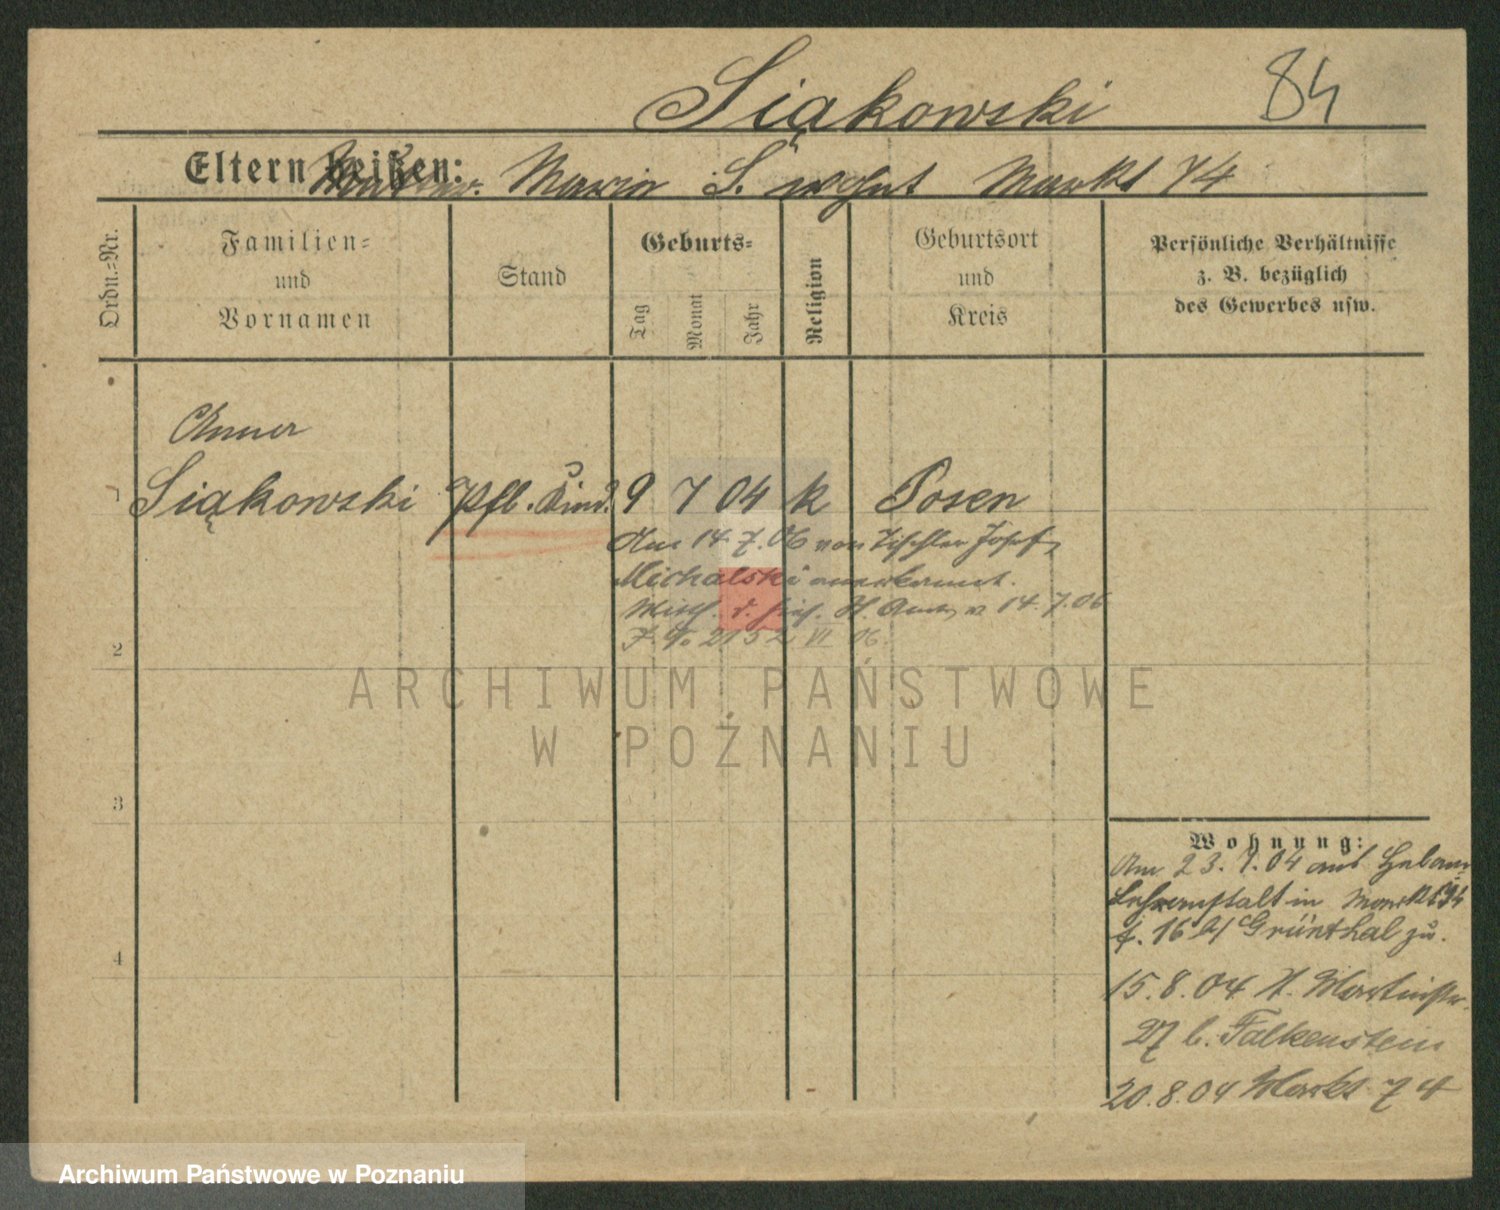 Siąkowski 84
Eltern heißen: Maria S. wohnt Markt 74
Ordn.=Nr.
Familien=
und
Vornamen
Stand
Geburts=
Tag
Monat
Jahr
Religion
Geburtsort
und
Kreis
Persönliche Verhältnisse
z. B. bezüglich
des Gewerbes usw.
Anna
1 Siąkowski Pfl. Kind. 9 7 04 k Posen
Am 14.7.06 von Tischler Josef
Michalski anerkannt.
14.7.06
2152 VI 06.
2
3
4
ARCHIWUM PAŃSTWOWE
W POZNANIU
Wohnung:
Am 23.7.04 aus Hebam
Lehranstalt in
16 b/ Grünthal zu.
15.8.04
27 b. Falkenstein
20.8.04 Markt 74
Archiwum Państwowe w Poznaniu